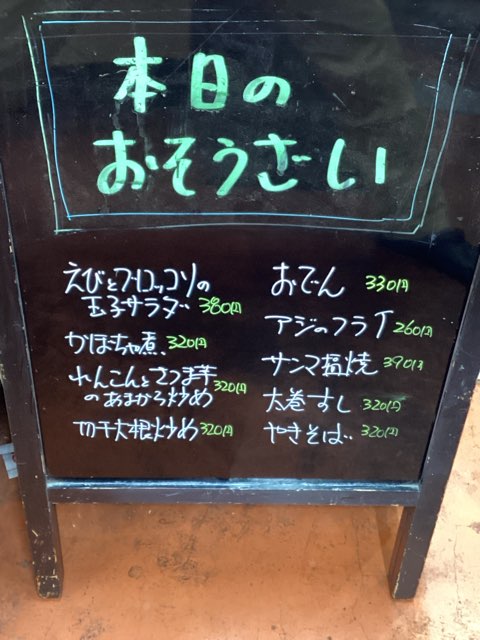 本日の
おそうざい
えびとブロッコリの
玉子サラダ 380円
かぼちゃ煮 320円
れんこんとさつま芋
のあまから炒め 320円
切干大根炒め 320円
おでん 330円
アジのフライ 260円
サンマ塩焼 390円
太巻すし 320円
やきそば 320円